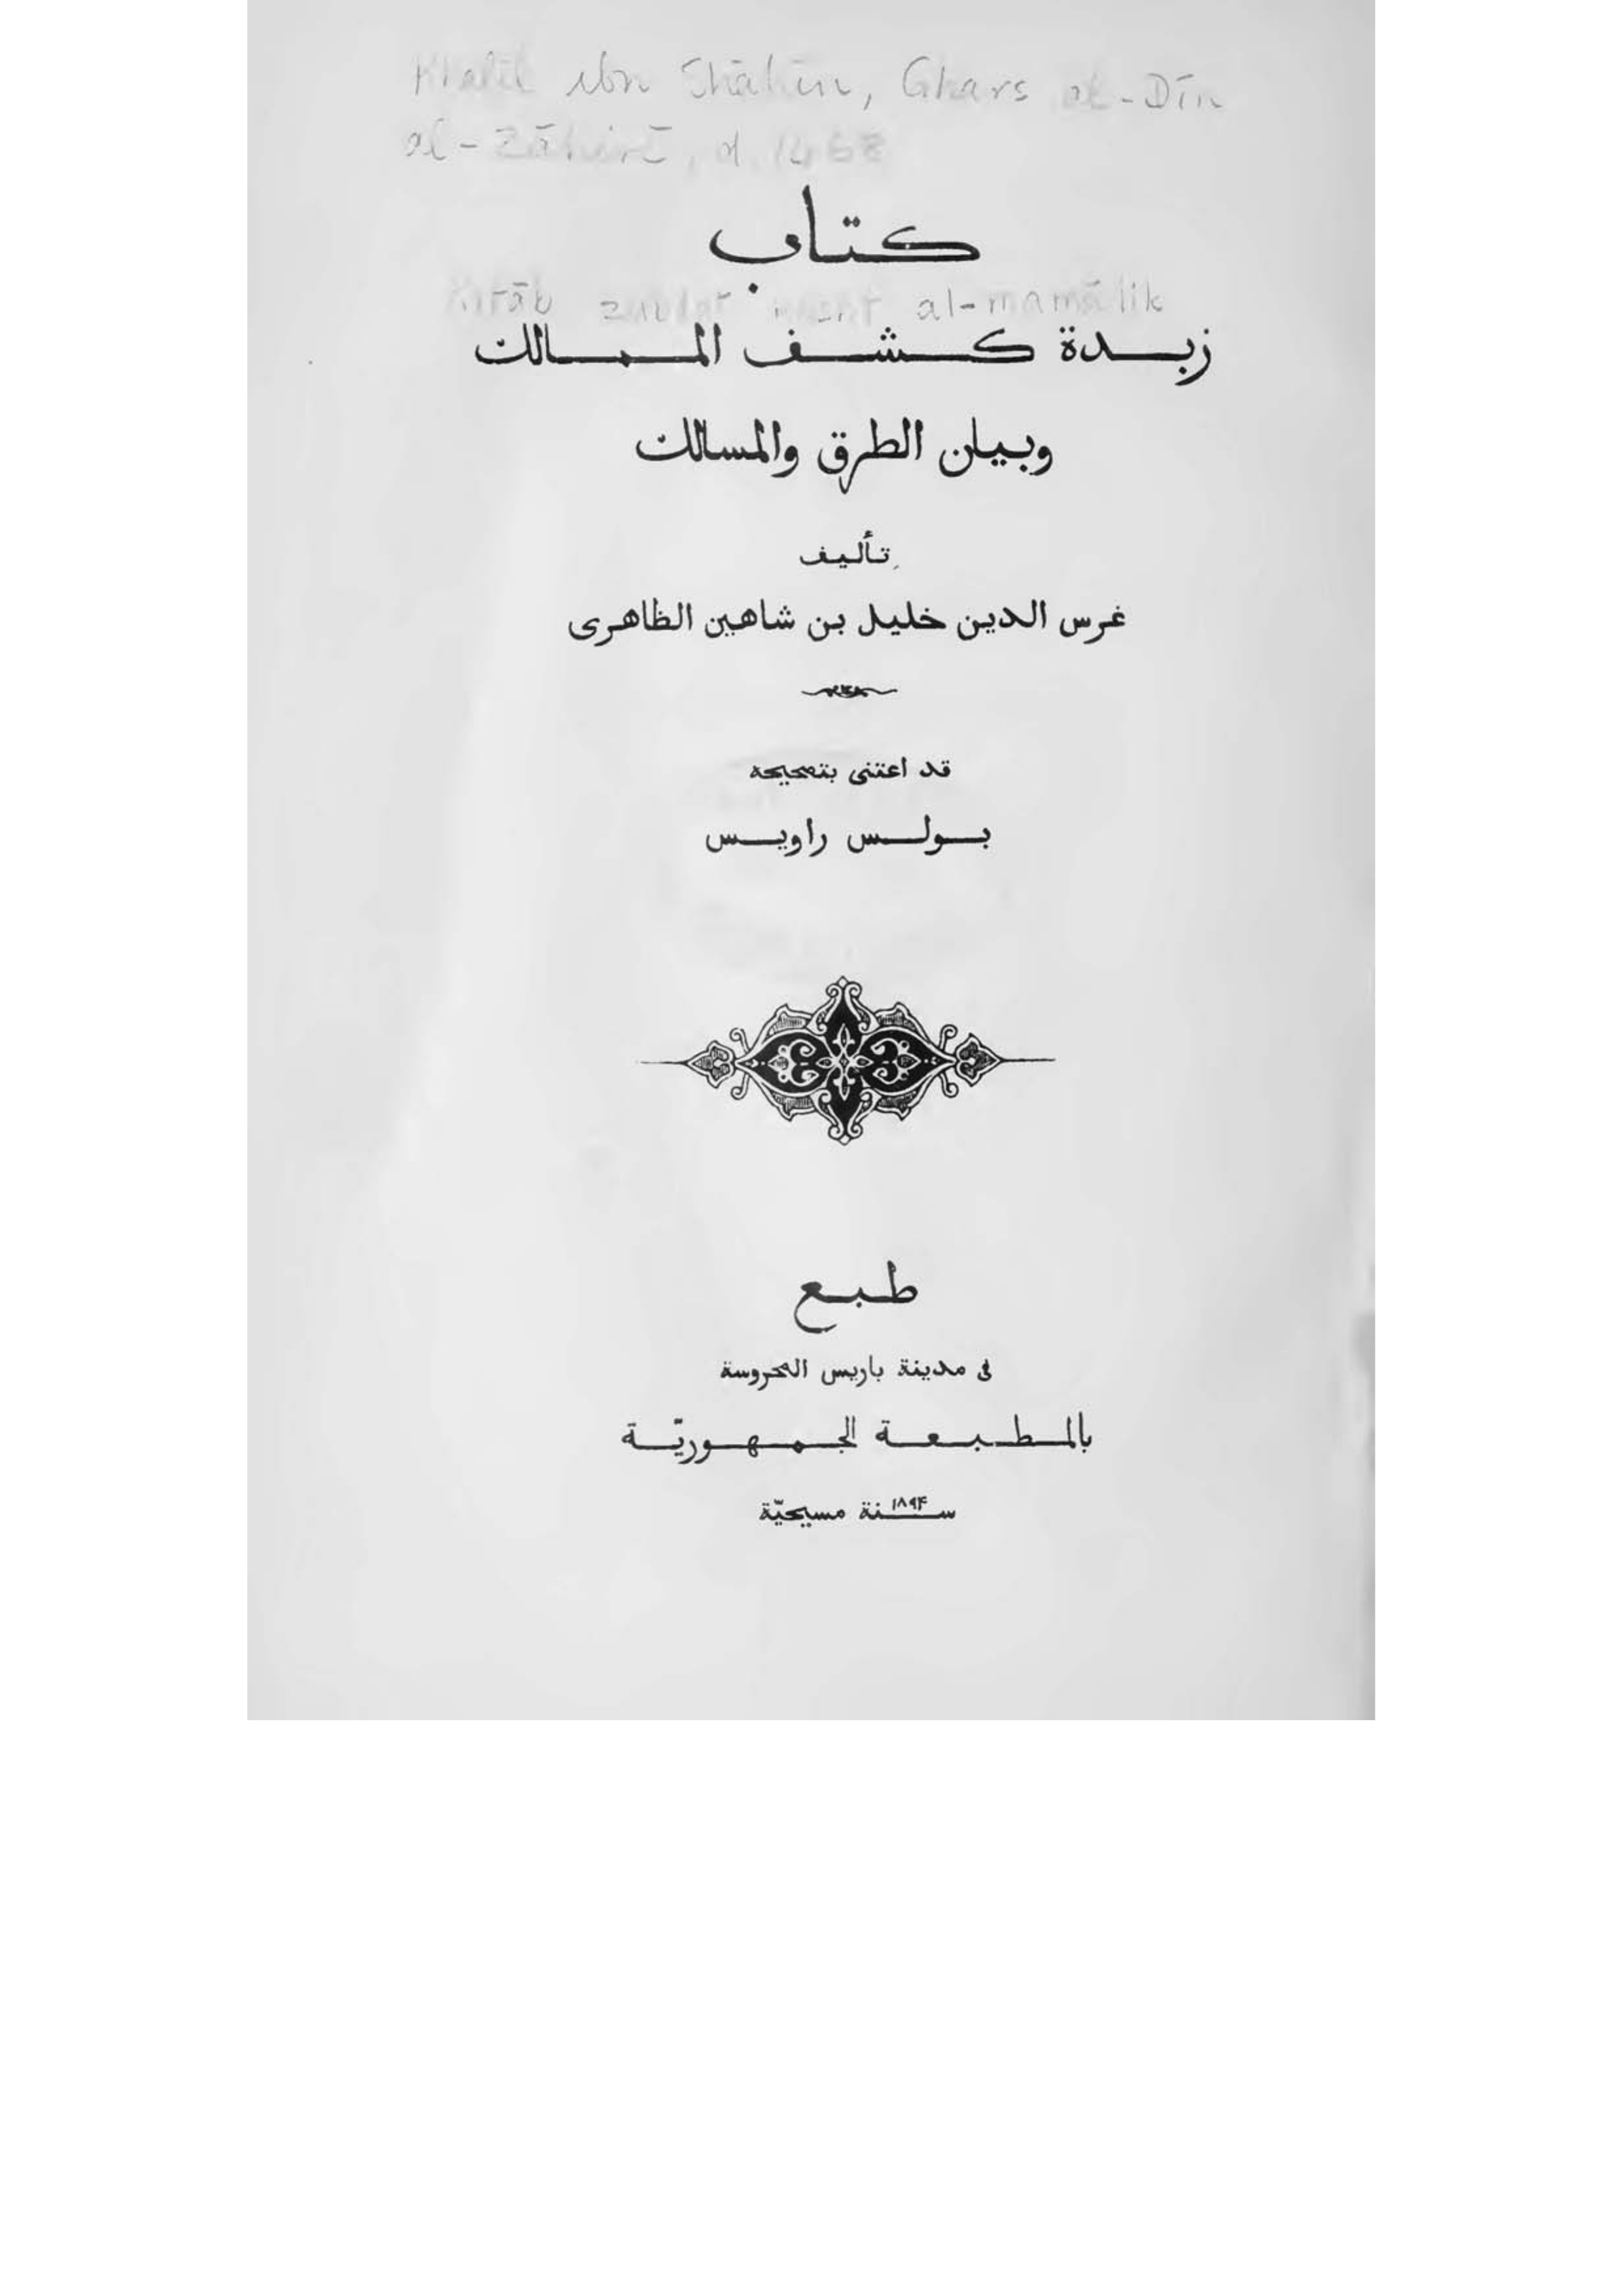 Khalīl ibn Shāhīn, Ghars al-Dīn
al-Zāhirī, d. 1468
كتاب
Kitāb zubdat kashf al-mamālik
زبدة كشف الممالك
وبيان الطرق والمسالك
تأليف
غرس الدين خليل بن شاهين الظاهرى
قد اعتنى بتصحيحه
بولس راويس
طبع
فى مدينة باريس المحروسة
بالمطبعة الجمهوريّة
سنة ١٨٩۴ مسيحيّة